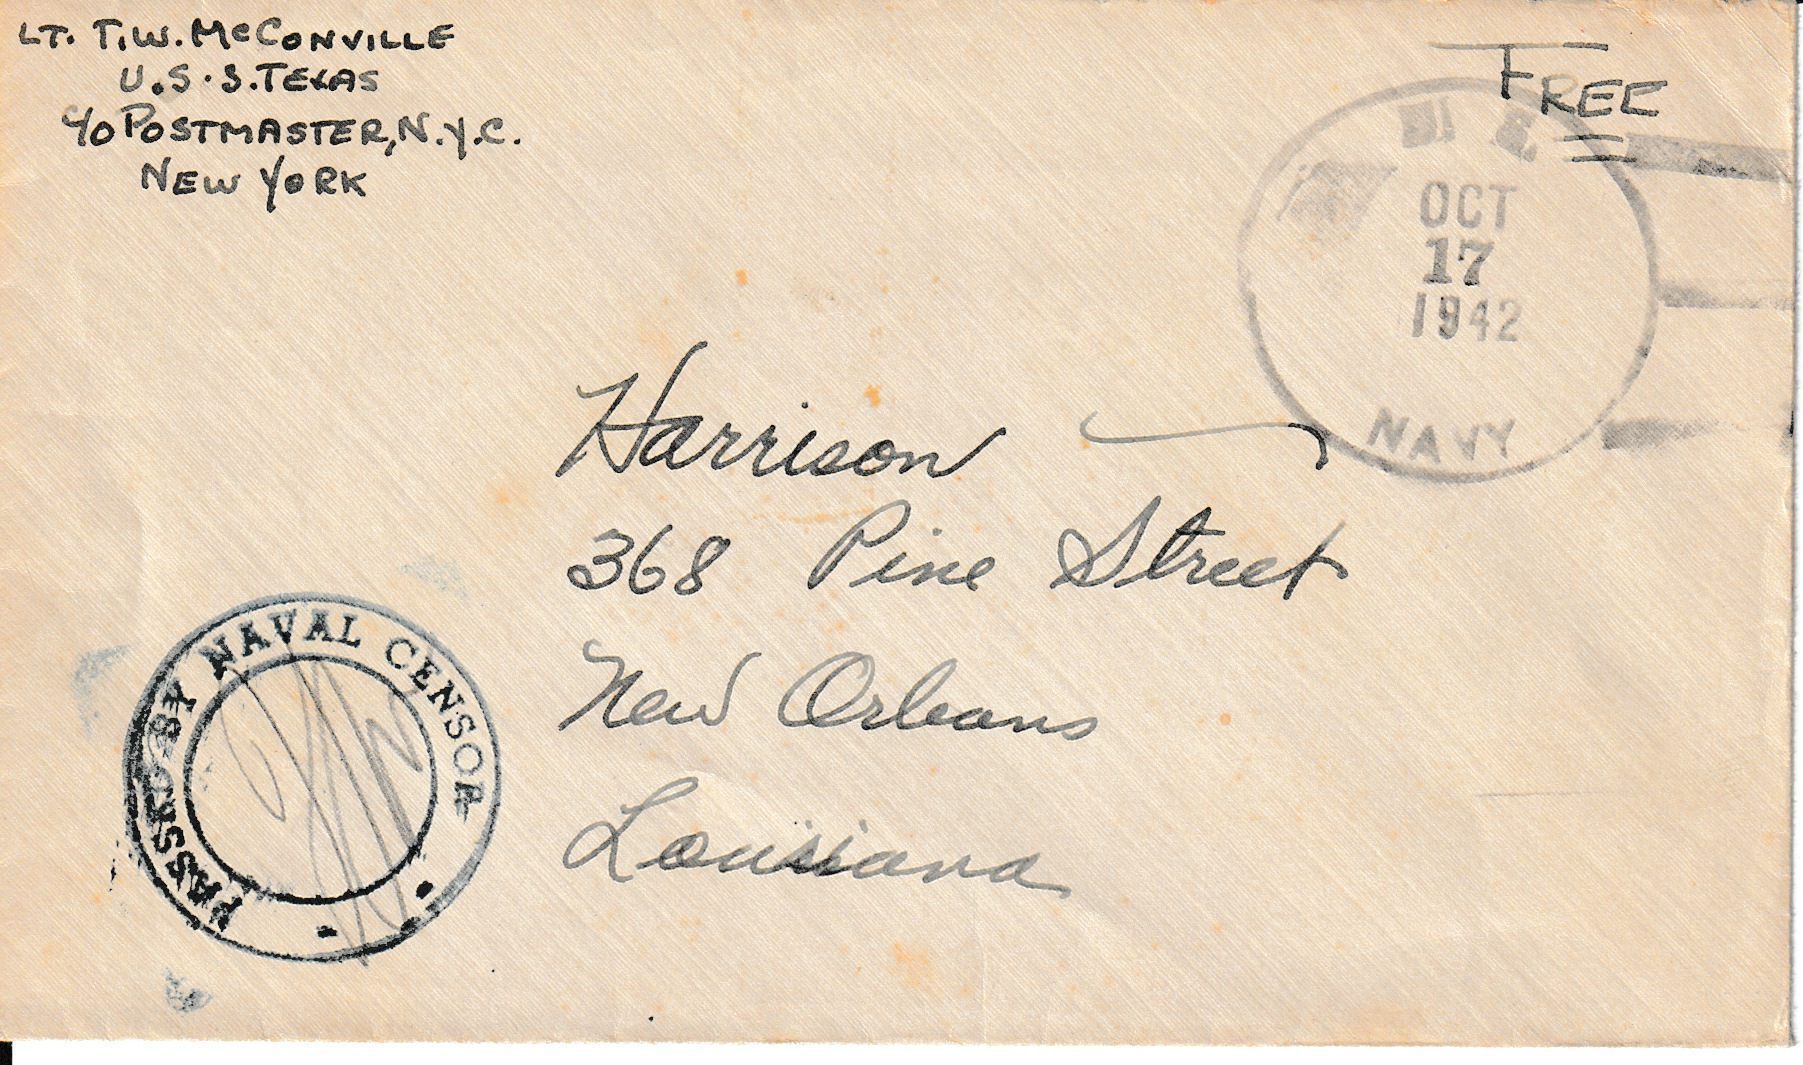 LT. T.W. McCONVILLE
U.S.S. TEXAS
c/o POSTMASTER, N.Y.C.
NEW YORK
FREE
OCT
17
1942
NAVY
Harrison
368 Pine Street
New Orleans
Louisiana
PASSED BY NAVAL CENSOR